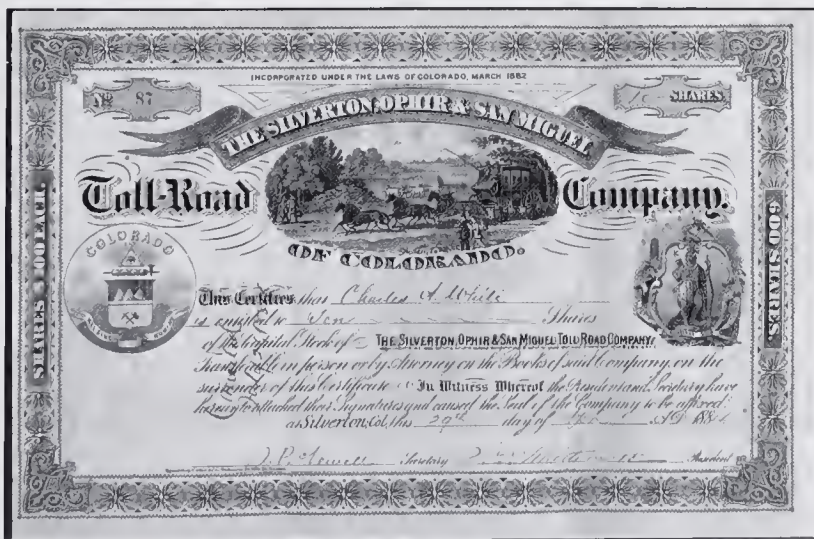 INCORPORATED UNDER THE LAWS OF COLORADO, MARCH 1882
No 87
SHARES.
THE SILVERTON, OPHIR & SAN MIGUEL
Toll-Road Company.
OF COLORADO.
COLORADO
SHARES $100 EACH.
600 SHARES.
This Certifies that Charles A. White
is entitled to Ten Shares
of the Capital Stock of THE SILVERTON, OPHIR & SAN MIGUEL TOLL ROAD COMPANY.
Transferable in person or by Attorney on the Books of said Company, on the
surrender of this Certificate In Witness Whereof the President and Secretary have
hereunto attached their Signatures and caused the Seal of the Company to be affixed.
at Silverton, Col, this 29th day of A.D. 188
Secretary President